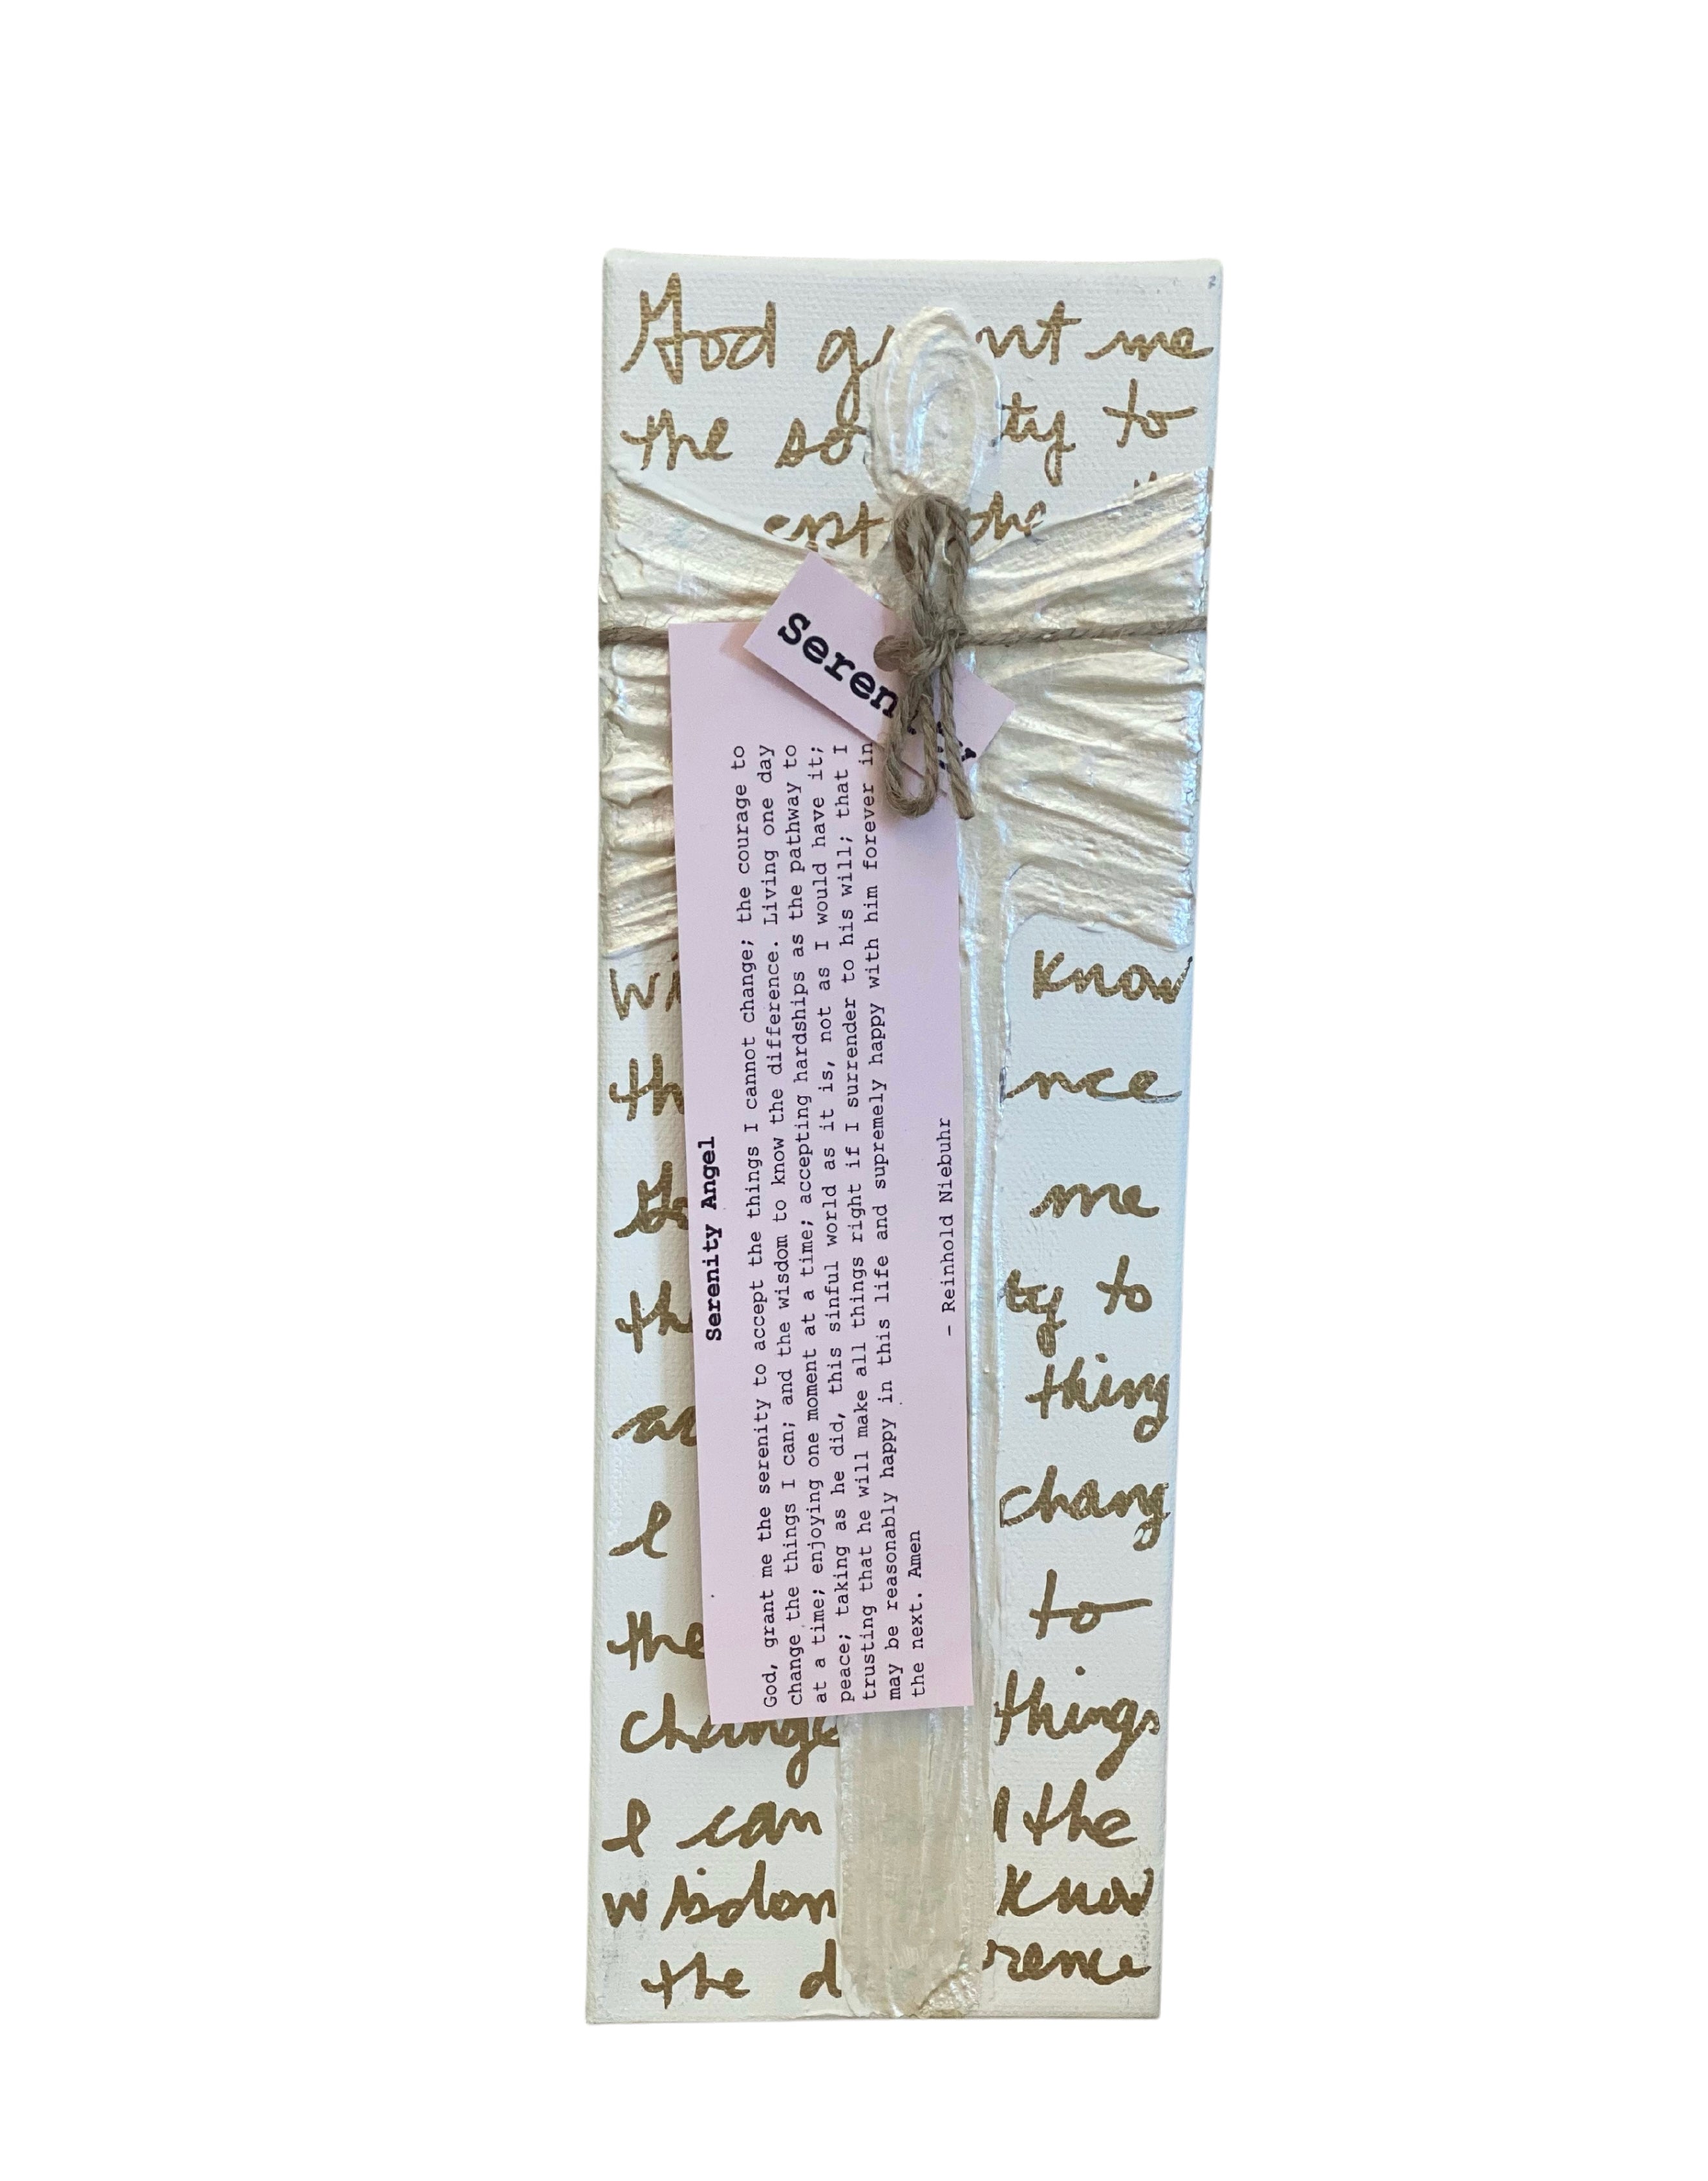 God me
the to
the
know
th nce
me
th ty to
thing
I chang
the to
change things
I can the
wisdom know
the d rence
Seren
Serenity Angel
God, grant me the serenity to accept the things I cannot change; the courage to
change the things I can; and the wisdom to know the difference. Living one day
at a time; enjoying one moment at a time; accepting hardships as the pathway to
peace; taking as he did, this sinful world as it is, not as I would have it;
trusting that he will make all things right if I surrender to his will; that I
may be reasonably happy in this life and supremely happy with him forever in
the next. Amen
– Reinhold Niebuhr